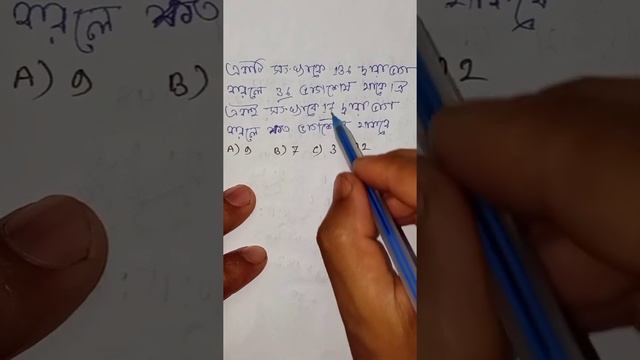 একটি সংখ্যাকে 136 দ্বারা ভাগ
করলে 36 ভাগশেষ থাকে ঐ
একই সংখ্যাকে 17 দ্বারা ভাগ
করলে কত ভাগশেষ থাকবে
A) 9 B) 7 C) 3 2